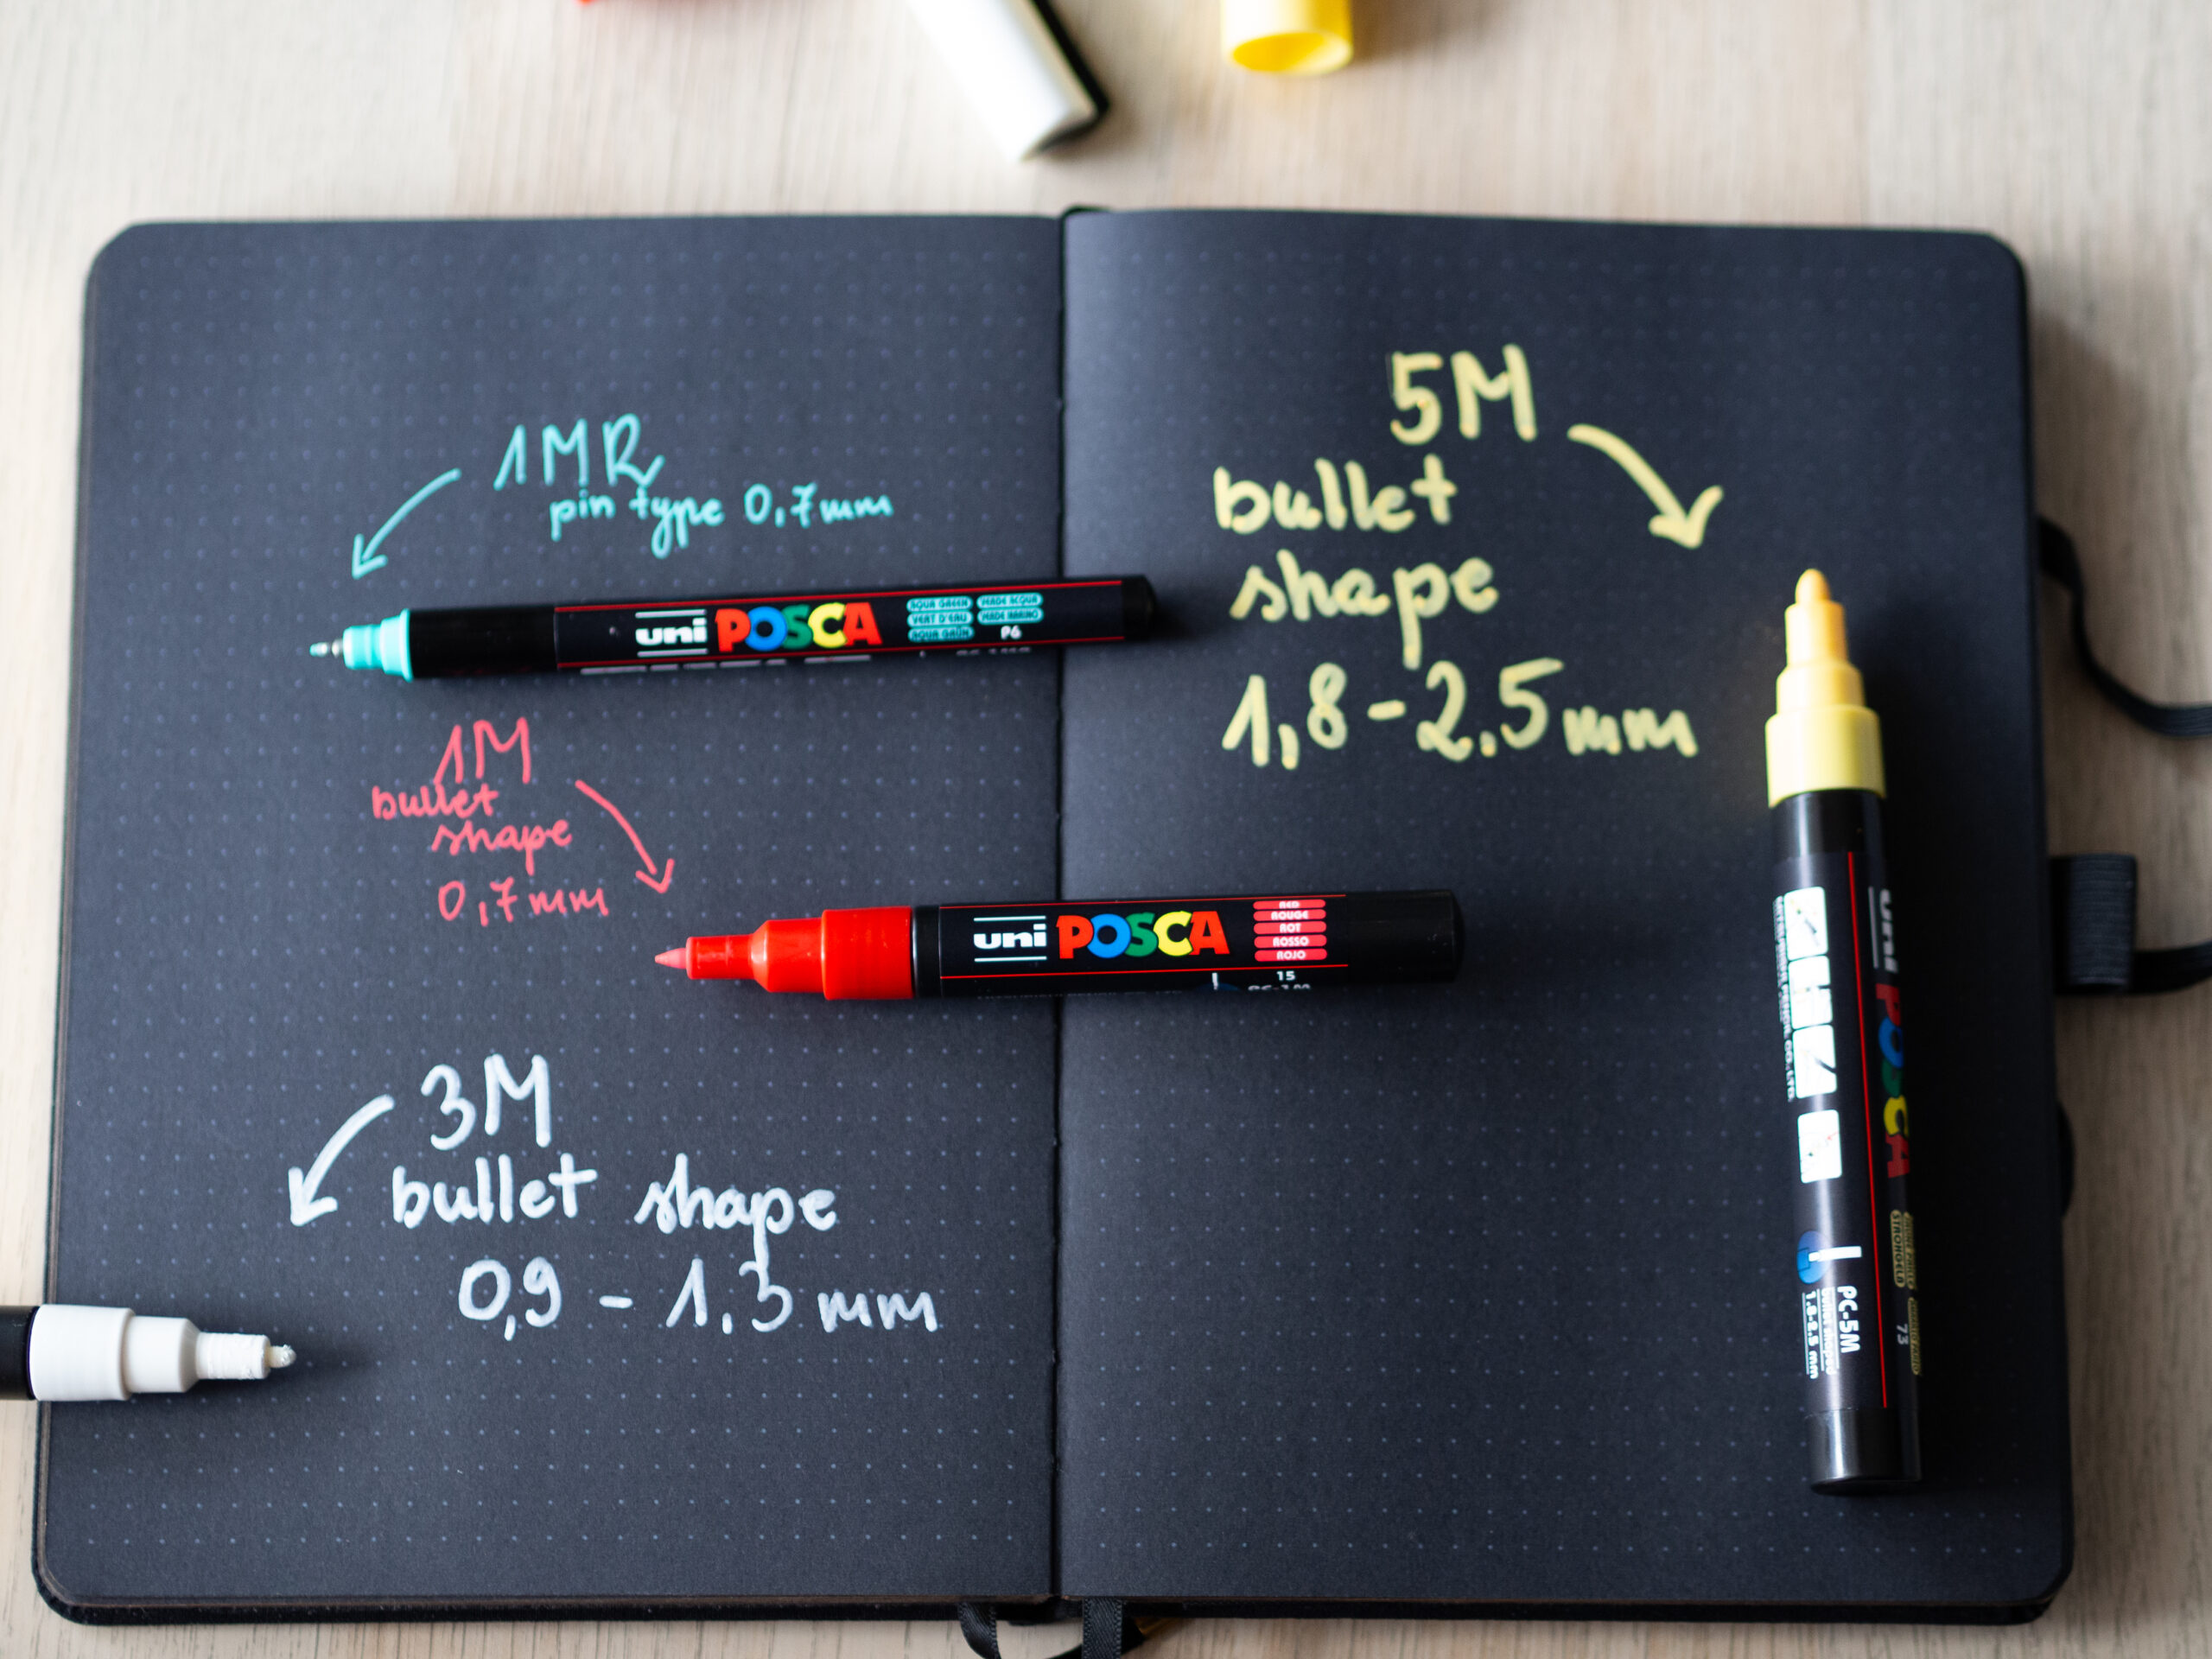 1MR
pin type 0,7mm
uni POSCA
AQUA GREEN
VERT D'EAU
P6
1M
bullet
shape
0,7mm
uni POSCA
RED
ROUGE
ROT
ROSSO
ROJO
15
3M
bullet shape
0,9 - 1.3 mm
5M
bullet
shape
1,8 - 2.5 mm
uni POSCA
PC-5M
bullet shaped
1.8-2.5 mm
73